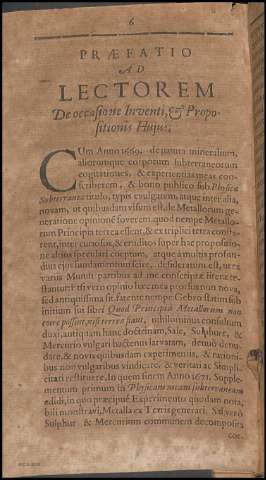 6
PRÆFATIO
AD
LECTOREM
De occasione Inventi, & Propo-
sitionis Hujus.
CUm Anno 1669. de natura mineralium,
aliorumque corporum subterraneorum
cogitationes, & experientias meas con-
scriberem, & bono publico sub Physicæ
Subterraneæ titulo, typis evulgarem, atque inter alia,
novam, ut quibusdam visum est, de Metallorum ge-
neratione opinionem foverem, quod nempe Metallo-
rum Principia terrea essent, & ex triplici terra consta-
rent, inter curiosos, & eruditos super hac propositio-
ne altius speculari cœptum, atque à multis profun-
dius ejus fundamentum scire, desideratum est, uti
variis Mundi partibus ad me conscriptæ literæ te-
stantur: est verò opinio hæc mea prorsus non nova,
sed antiquissima sit, fatente nempe Gebro statim sub
initium sui libri Quod Principia Metallorum non
terræ possint, nisi terrea fiant, nihilominus consulum
duxi, antiquam hanc doctrinam, Sale, Sulphure, &
Mercurio vulgari hactenus larvatam, denuò denu-
dare, & novis quibusdam experimentis, & rationi-
bus non vulgaribus vindicare, & veritati ac Simpli-
citati restituere, In quem finem Anno 1671. Supple-
mentum primum in Physicam meam subterraneam
edidi, in quo præcipuè Experimento quodam nota-
bili monstravi, Metalla ex Terris generari. Sal verò
Sulphur, & Mercurium communem decomposita